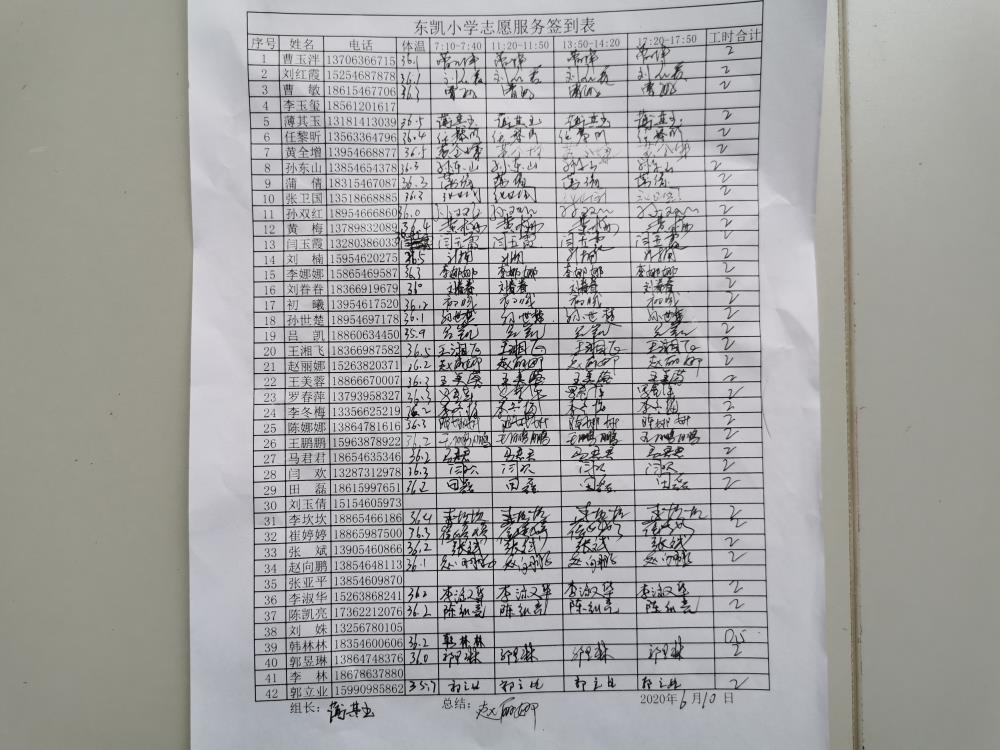 东凯小学志愿服务签到表
序号 姓名 电话 体温 7:10-7:40 11:20-11:50 13:50-14:20 17:20-17:50 工时合计
1 曹玉泮 13706366715 36.1 2
2 刘红霞 15254687878 36.1 2
3 曹敏 18615467706 36.3 2
4 李玉玺 18561201617
5 薄其玉 13181413039 36.5 薄其玉 薄其玉 薄其玉 薄其玉 2
6 任黎昕 13563364796 36.4 任黎昕 任黎昕 任黎昕 任黎昕 2
7 黄全增 13954668877 36.5 黄全增 2
8 孙东山 13854654378 36.5 孙东山 孙东山 孙东山 孙东山 2
9 蒲倩 18315467087 36.3 蒲倩 蒲倩 蒲倩 蒲倩 2
10 张卫国 13518668885 36.3 2
11 孙双红 18954666860 36.0 2
12 黄梅 13789832089 36.4 黄梅 黄梅 黄梅 黄梅 2
13 闫玉霞 13280386033 闫玉霞 闫玉霞 闫玉霞 闫玉霞 2
14 刘楠 15954620275 36.5 刘楠 刘楠 刘楠 刘楠 2
15 李娜娜 15865469587 36.3 李娜娜 李娜娜 李娜娜 李娜娜 2
16 刘眷眷 18366919679 360 刘眷眷 刘眷眷 刘眷眷 刘眷眷 2
17 初曦 13954617520 36.2 初曦 初曦 初曦 初曦 2
18 孙世楚 18954697178 36.1 孙世楚 孙世楚 孙世楚 孙世楚 2
19 吕凯 18860634450 35.9 吕凯 吕凯 吕凯 吕凯 2
20 王湘飞 18366987582 36.5 王湘飞 王湘飞 王湘飞 王湘飞 2
21 赵丽娜 15263820371 36.2 赵丽娜 赵丽娜 赵丽娜 赵丽娜 2
22 王美蓉 18866670007 36.3 王美蓉 王美蓉 王美蓉 王美蓉 2
23 罗春萍 13793958327 36.3 2
24 李冬梅 13356625219 36.2 2
25 陈娜娜 13864781616 36.3 陈娜娜 陈娜娜 陈娜娜 陈娜娜 2
26 王鹏鹏 15963878922 36.2 王鹏鹏 王鹏鹏 王鹏鹏 王鹏鹏 2
27 马君君 18654635346 36.2 马君君 马君君 马君君 马君君 2
28 闫欢 13287312978 36.3 闫欢 闫欢 闫欢 闫欢 2
29 田磊 18615997651 36.2 田磊 田磊 田磊 田磊 2
30 刘玉倩 15154605973
31 李坎坎 18865466186 36.4 李坎坎 李坎坎 李坎坎 李坎坎 2
32 崔婷婷 18865987500 36.3 崔婷婷 崔婷婷 崔婷婷 崔婷婷 2
33 张斌 13905460866 36.2 张斌 张斌 张斌 张斌 2
34 赵向鹏 13854648113 36.1 赵向鹏 赵向鹏 赵向鹏 赵向鹏 2
35 张亚平 13854609870
36 李淑华 15263868241 李淑华 李淑华 李淑华 李淑华 2
37 陈凯亮 17362212076 36.2 陈凯亮 陈凯亮 陈凯亮 陈凯亮 2
38 刘姝 13256780105
39 韩林林 18354600606 36.2 韩林林 0.5
40 郭昱琳 13864748376 360 郭昱琳 郭昱琳 郭昱琳 郭昱琳 2
41 李林 18678637880
42 郭立业 15990985862 35.7 郭立业 郭立业 郭立业 郭立业 2
组长: 薄其玉 总结: 赵丽娜 2020年6月10日